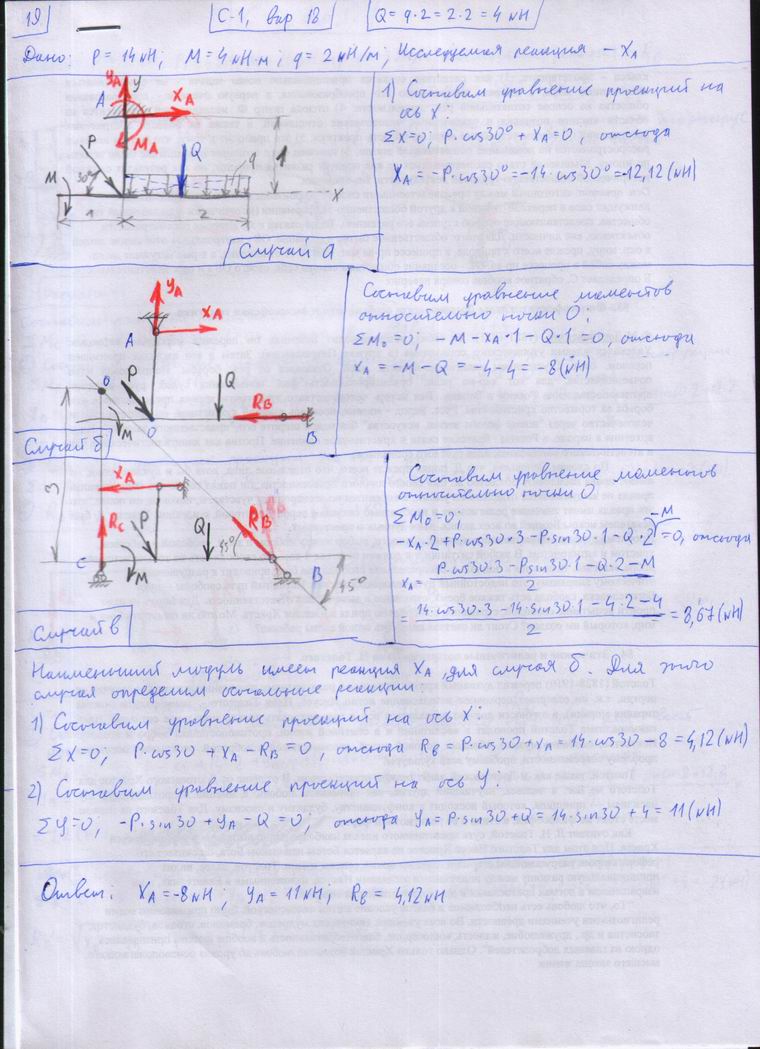 19
С-1, вар 18
Q = q·2 = 2·2 = 4 кН
Дано: P = 14кН; M = 4кН·м; q = 2кН/м; Исследуемая реакция – XA
YA
y
A
XA
MA
P
Q
q
1
M
30°
X
1
2
Случай а
1) Составим уравнение проекций на
ось X:
ΣX=0; P·cos30° + XA = 0, откуда
XA = -P·cos30° = -14·cos30° = -12,12 (кН)
YA
XA
A
O
P
Q
RB
M
O
B
Случай б
Составим уравнение моментов
относительно точки O:
ΣMo=0; -M - XA·1 - Q·1 = 0, откуда
XA = -M - Q = -4-4 = -8 (кН)
3
XA
RC
P
Q
RB
RB
C
M
45°
B
45°
Случай в
Составим уравнение моментов
относительно точки O
ΣMo=0;
-M
-XA·2 + P·cos30·3 - P·sin30·1 - Q·2 = 0, откуда
XA = P·cos30·3 - Psin30·1 - Q·2 - M / 2
= 14·cos30·3 - 14·sin30·1 - 4·2 - 4 / 2 = 8,67 (кН)
Наименьший модуль имеет реакция XA, для случая б. Для этого
случая определим остальные реакции:
1) Составим уравнение проекций на ось X:
ΣX=0; P·cos30 + XA - RB = 0, откуда RB = P·cos30 + XA = 14·cos30 - 8 = 4,12 (кН)
2) Составим уравнение проекций на ось Y:
ΣY=0; -P·sin30 + YA - Q = 0; откуда YA = P·sin30 + Q = 14·sin30 + 4 = 11 (кН)
Ответ: XA = -8кН; YA = 11кН; RB = 4,12кН